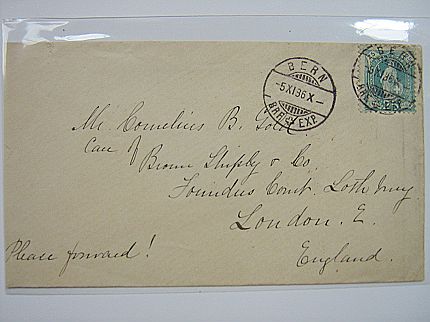 BERN
-5.XI.96.X-
BRIEF EXP.
BERN
25
Mr. Cornelius B. Gold.
Care of
Brown Shipley & Co
Founders Court. Lothbury.
London. E.
Please forward!
England.